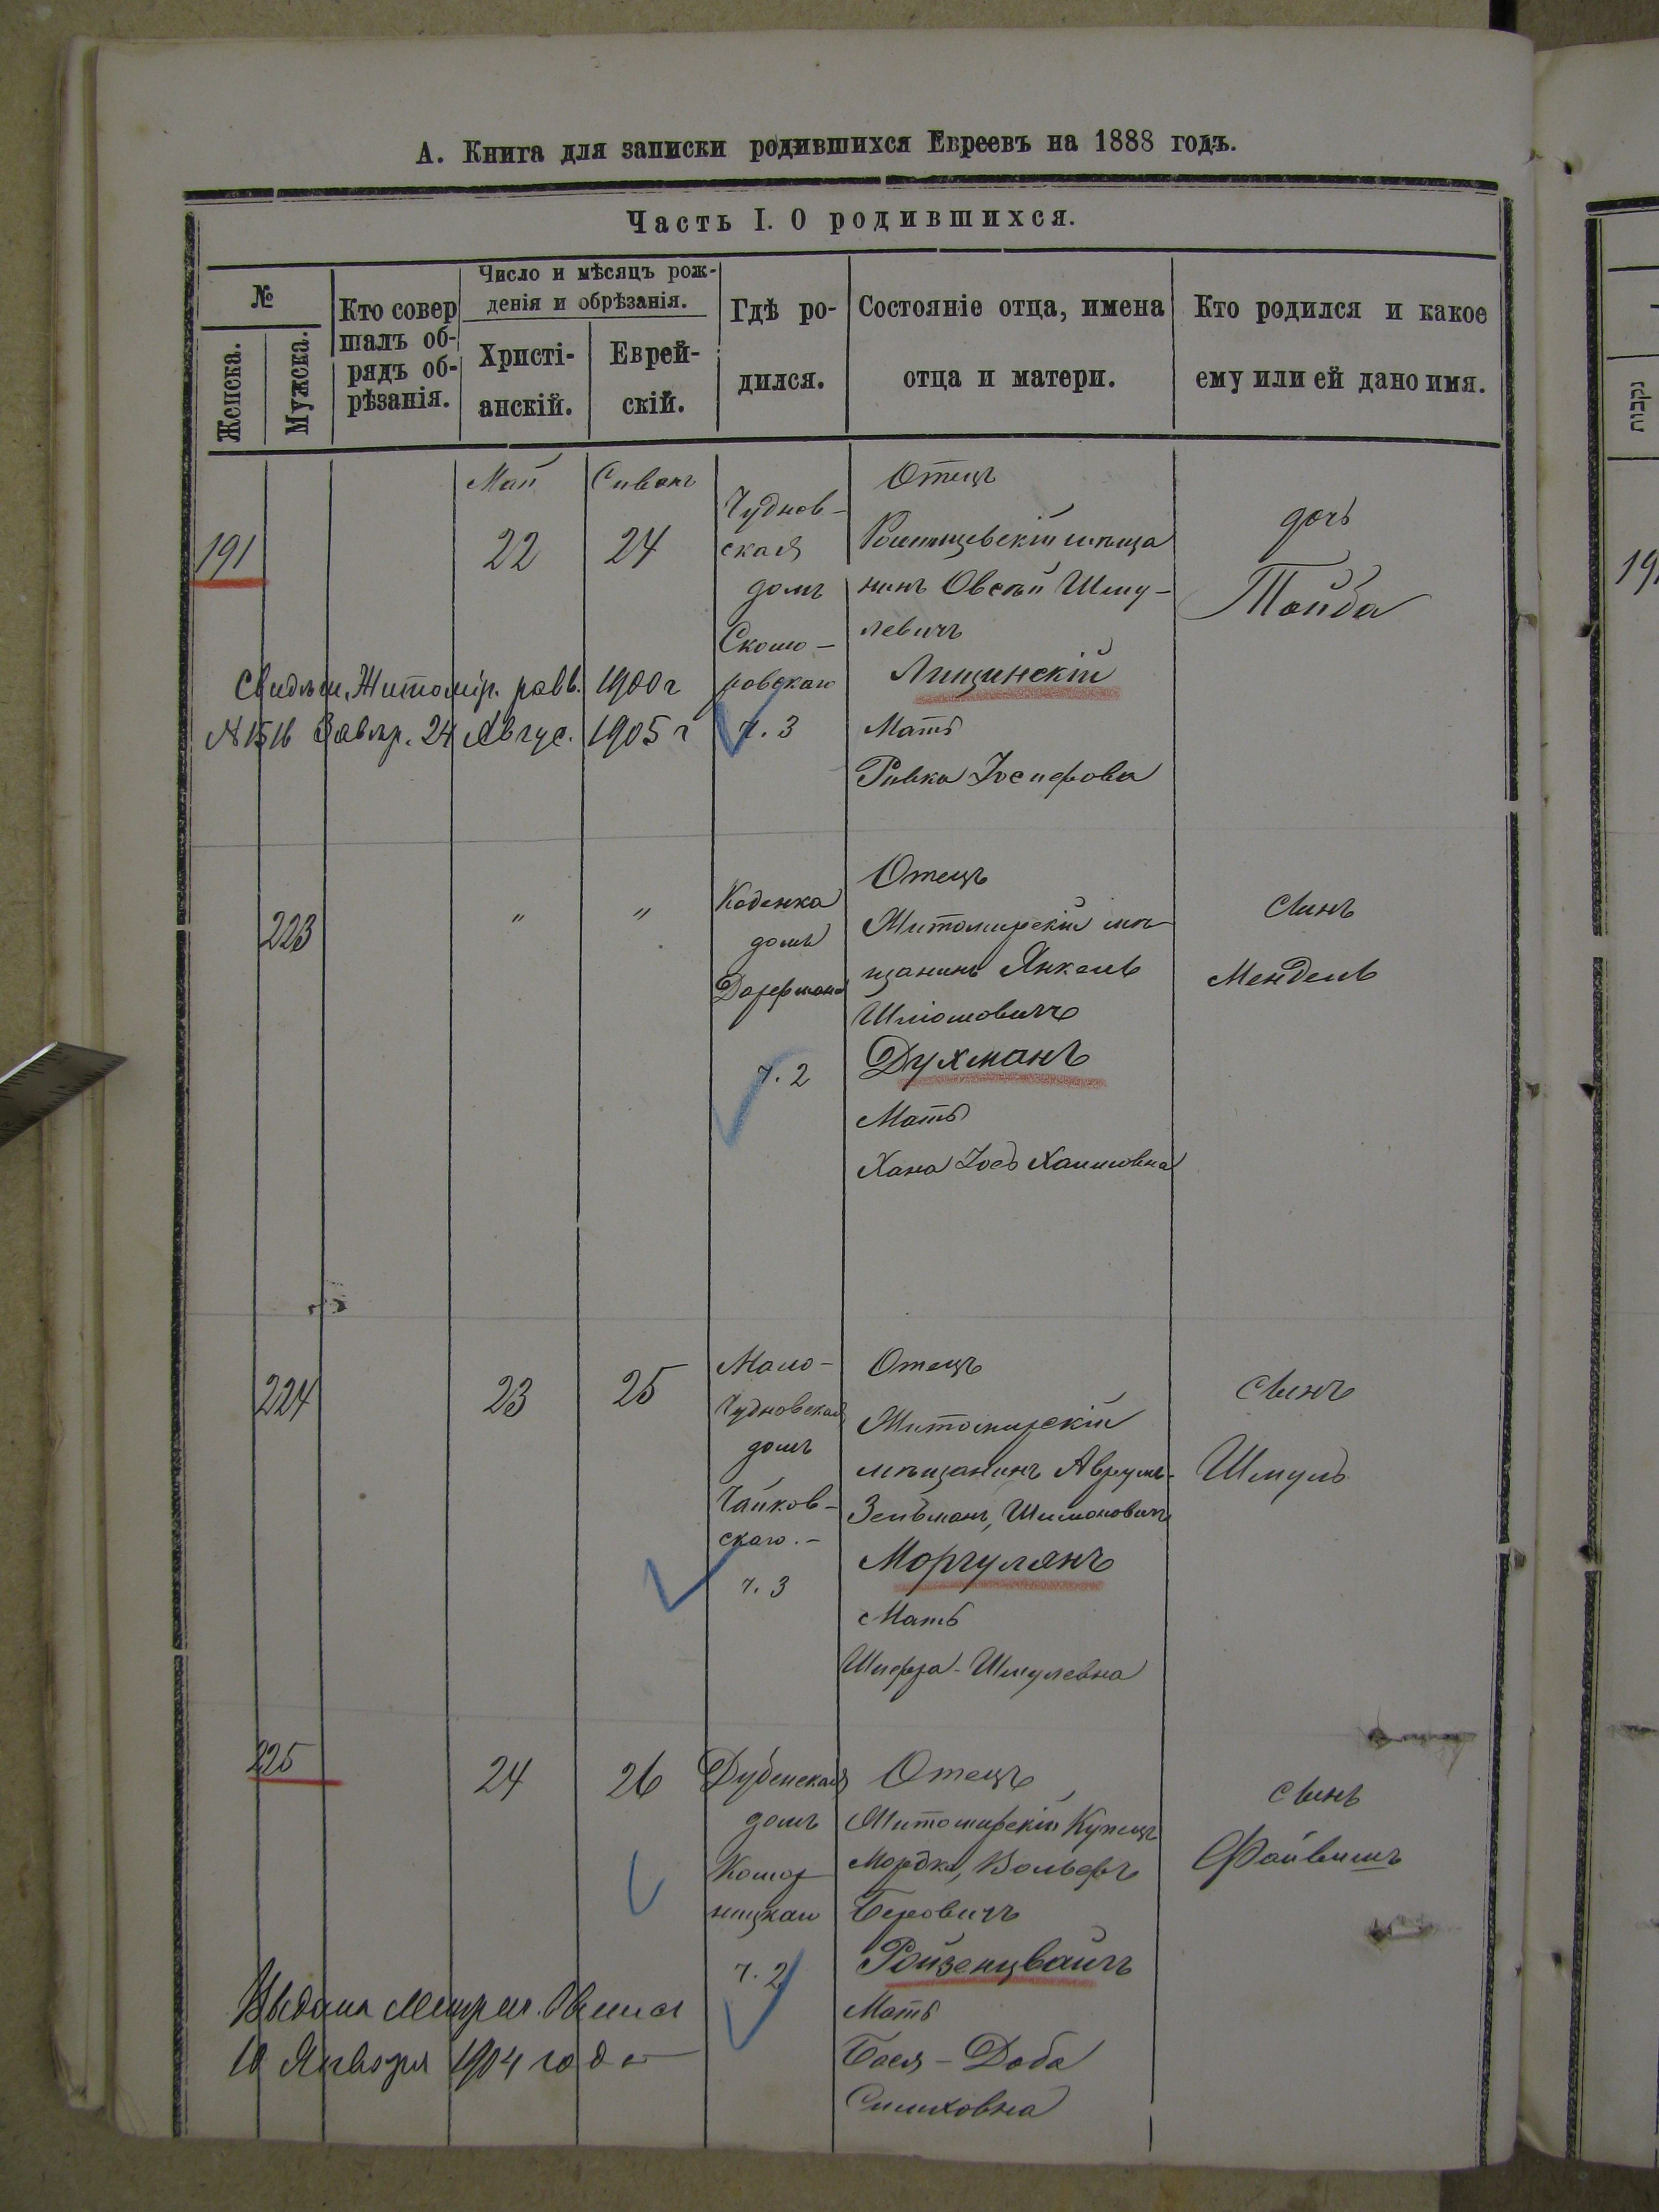 А. Книга для записки родившихся Евреевъ на 1888 годъ.
Часть I. О родившихся.
№
Женска.
Мужска.
Кто совер
шалъ об-
рядъ об-
рѣзанія.
Число и мѣсяцъ рож-
денія и обрѣзанія.
Христі-
анскій.
Еврей-
скій.
Гдѣ ро-
дился.
Состояніе отца, имена
отца и матери.
Кто родился и какое
ему или ей дано имя.
191
Май
22
Сиванъ
24
Чуднов-
ская
домъ
Скомо-
ровскаго
ч. 3
Отецъ
мѣща
нинъ Овсѣй Шму-
левичъ
Лищинскій
Мать
Ривка Іосифова
дочь
Тойба
Свидѣт. Житомір. равв. 1900 г
№ 1516 Завѣр. 24 Авгус. 1905 г
223
"
"
Коденка
домъ
ч. 2
Отецъ
Житомирскій мѣ-
щанинъ Янкель
Шліомовичъ
Духманъ
Мать
Хана Хаимовна
сынъ
Мендель
224
23
25
Мало-
Чудновская
домъ
Чайков-
скаго.-
ч. 3
Отецъ
Житомирскій
мѣщанинъ Аврумъ-
Зельманъ, Шимоновичъ
Моргулянъ
Мать
Шифра-Шмулевна
сынъ
Шмуль
225
24
26
Дубенская
домъ
Комор
ницкаго
ч. 2
Отецъ
Житомирскій Купецъ
Мордко, Вольфъ
Беровичъ
Ройзенцвайгъ
Мать
Бася-Доба
Симховна
сынъ
Файвишъ
Выдана Метрич.
10 Января 1904 года
190
נקבות